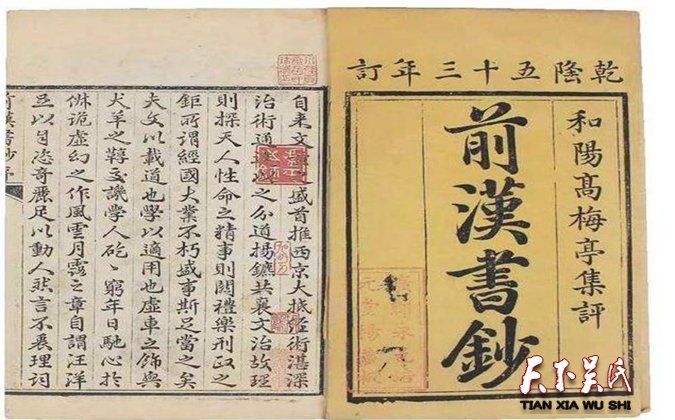 乾隆五十三年訂
和陽髙梅亭集評
前漢書鈔
自来文盛首推西京大抵經術湛深
治術通之分道揚鑣共襄文治故理
則探天人性命之精事則関禮樂刑政之
鉅所謂經國大業不朽盛事斯足當之矣
夫文以載道也學以適用也虛車之飾與
犬羊之鞟交譏學人矻〻窮年日馳心於
俶詭虛幻之作風雲月露之章自謂汪洋
以自恣奇麗足以動人然言不衷理詞
前漢書鈔序
天下吴氏
TIAN XIA WU SHI